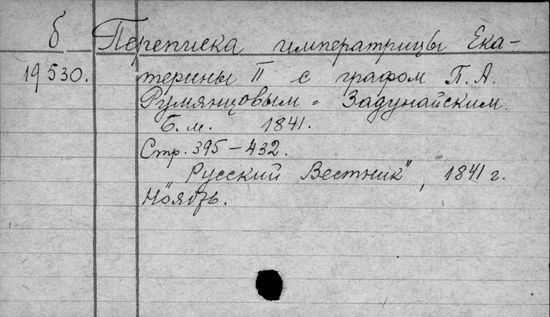 б Переписка императрицы Ека-
19530. терины II с графом П. А.
Румянцовым-Задунайским.
Б. м. 1841.
Стр. 395-432.
„Русский Вестник", 1841 г.
Ноябрь.